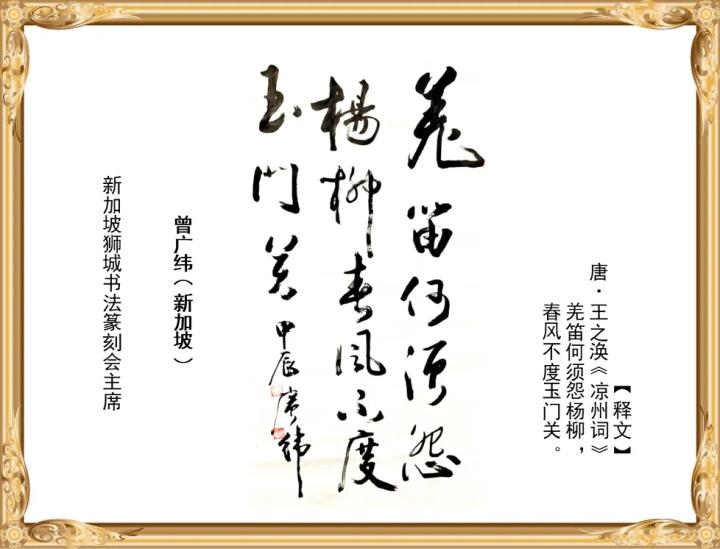 【释文】
唐·王之涣《凉州词》
羌笛何须怨杨柳，
春风不度玉门关。
羌笛何须怨
楊柳春風不度
玉門关
甲辰广纬
曾广纬（新加坡）
新加坡狮城书法篆刻会主席